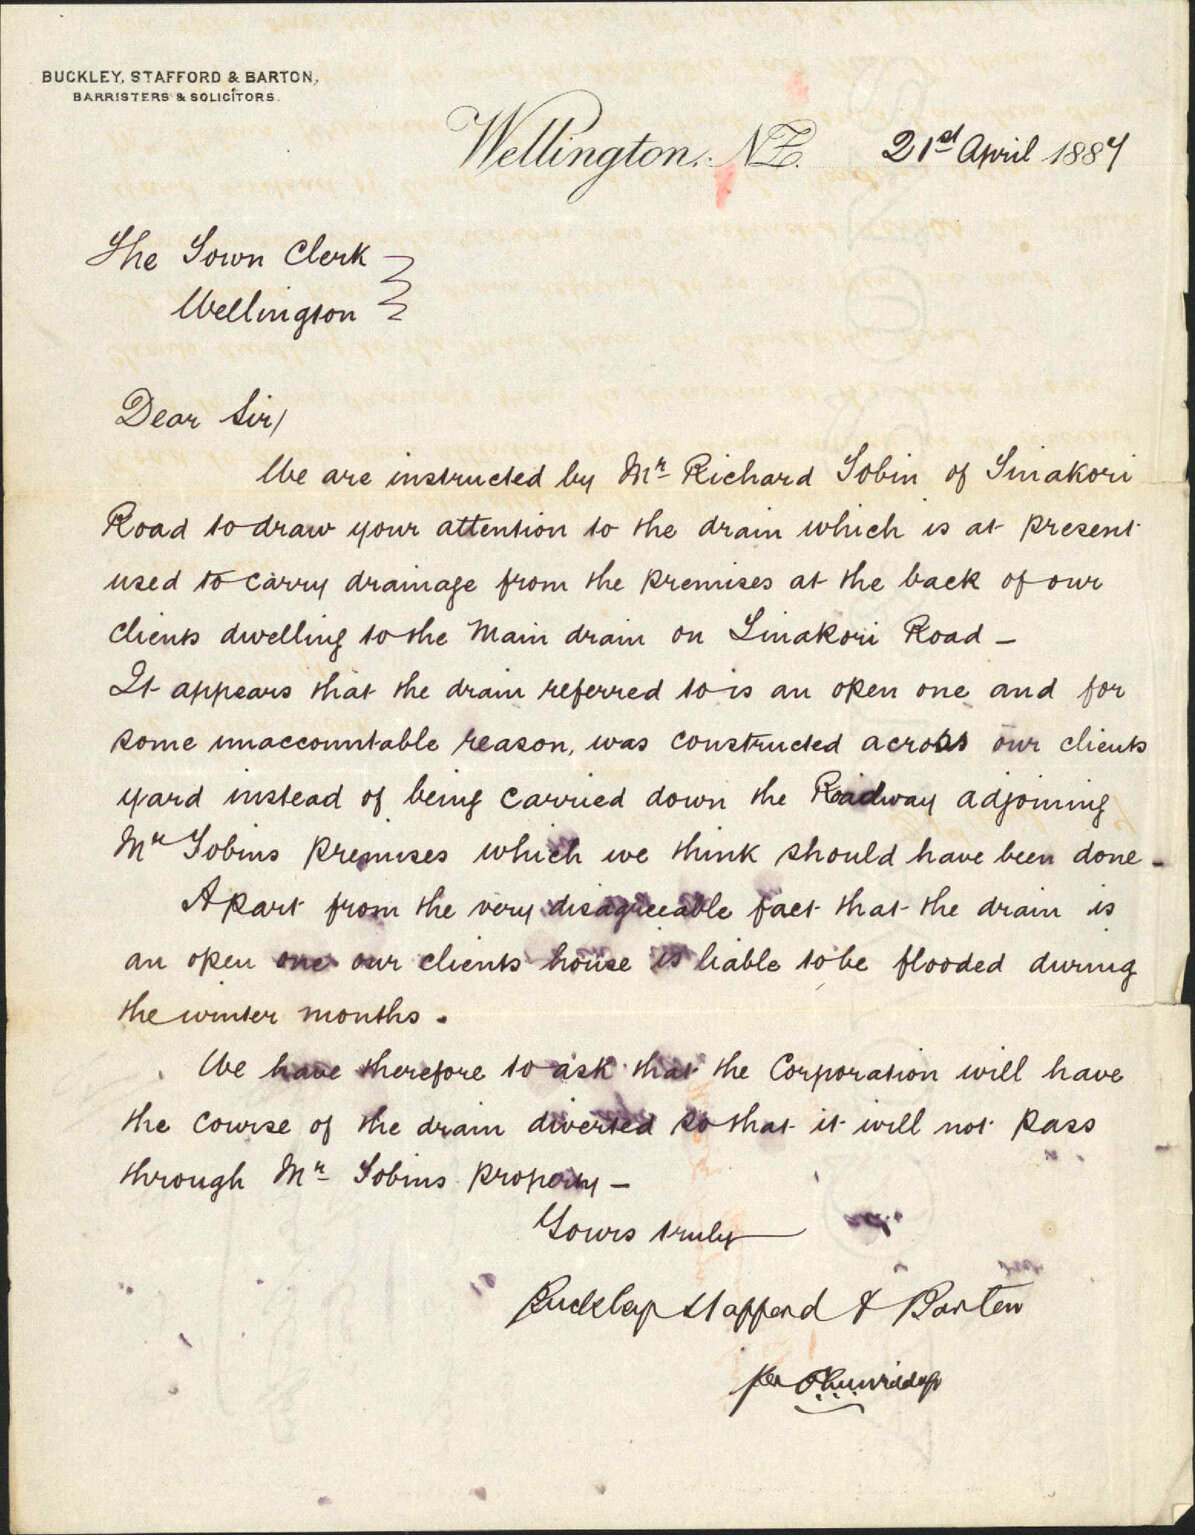 BUCKLEY, STAFFORD & BARTON,
BARRISTERS & SOLICITORS.
Wellington, N.Z. 21st April 1887
The Town Clerk
Wellington
Dear Sir/
We are instructed by Mr Richard Tobin of Tinakori
Road to draw your attention to the drain which is at present
used to carry drainage from the premises at the back of our
clients dwelling to the Main drain on Tinakori Road –
It appears that the drain referred to is an open one and for
some unaccountable reason, was constructed across our clients
yard instead of being carried down the Roadway adjoining
Mr Tobins premises which we think should have been done –
Apart from the very disagreeable fact that the drain is
an open one our clients house is liable to be flooded during
the winter months.
We have therefore to ask that the Corporation will have
the course of the drain diverted so that it will not pass
through Mr Tobins property –
Yours truly
Buckley Stafford & Barton
per